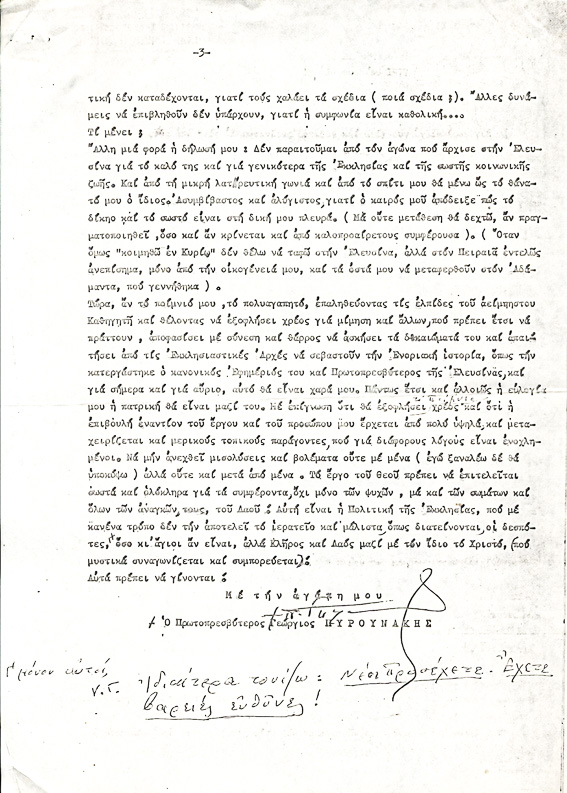 -3-
τική δέν καταδέχονται, γιατί τούς χαλάει τά σχέδια ( ποιά σχέδια ; ). Ἄλλες δυνά-
μεις νά ἐπιβληθοῦν δέν ὑπάρχουν, γιατί ἡ συμφωνία εἶναι καθολική....
Τί μένει ;
Ἄλλη μιά φορά ἡ δήλωσή μου : Δέν παραιτοῦμαι ἀπό τόν ἀγώνα πού ἄρχισε στήν Ἐλευ-
σίνα γιά τό καλό της καί γιά γενικότερα τῆς Ἐκκλησίας καί τῆς σωστῆς κοινωνικῆς
ζωῆς. Καί ἀπό τή μικρή λατρευτική γωνιά καί ἀπό τό σπίτι μου θά μένω ὡς τό θάνα-
τό μου ὁ ἴδιος. Ἀσυμβίβαστος καί ἀλύγιστος, γιατί ὁ καιρός μοῦ ἀπόδειξε πώς τό
δίκηο καί τό σωστό εἶναι στή δική μου πλευρά. ( Μά οὔτε μετάθεση θά δεχτῶ, ἄν πραγ-
ματοποιηθεῖ , ὅσο καί ἄν κρίνεται καί ἀπό καλοπροαίρετους συμφέρουσα ). ( Ὅταν
ὅμως "κοιμηθῶ ἐν Κυρίῳ" δέν θέλω νά ταφῶ στήν Ἐλευσίνα, ἀλλά στόν Πειραιᾶ ἐντελῶς
ἀνεπίσημα, μόνο ἀπό τήν οἰκογένειά μου, καί τά ὀστά μου νά μεταφερθοῦν στόν Ἀδά-
μαντα, πού γεννήθηκα ) .
Τώρα, ἄν τό ποίμνιό μου ,τό πολυαγαπητό, ἐπαληθεύοντας τίς ἐλπίδες τοῦ ἀείμνηστου
Καθηγητῆ καί θέλοντας νά ἐξοφλήσει χρέος γιά μίμηση καί ἄλλων, πού πρέπει ἔτσι νά
πράττουν , ἀποφασίσει μέ σύνεση καί θάρρος νά ἀσκήσει τά δικαιώματά του καί ἀπαι-
τήσει ἀπό τίς Ἐκκλησιαστικές Ἀρχές νά σεβαστοῦν τήν Ἐνοριακή ἱστορία, ὅπως τήν
κατεργάστηκε ὁ κανονικός Ἐφημέριός του καί Πρωτοπρεσβύτερος τῆς Ἐλευσίνας, καί
γιά σήμερα καί γιά αὔριο, αὐτό θά εἶναι χαρά μου. Πάντως ἔτσι καί ἀλλοιῶς ἡ εὐλογία
μου ἡ πατρική θά εἶναι μαζί του. Μέ ἐπίγνωση ὅτι θά ἐξοφλήσει χρέος καί ὅτι ἡ
ἐπιβουλή ἐναντίον τοῦ ἔργου καί τοῦ προσώπου μου ἔρχεται ἀπό πολύ ὑψηλά, καί μετα-
χειρίζεται καί μερικούς τοπικούς παράγοντες, πού γιά διάφορους λόγους εἶναι ἐνοχλη-
μένοι. Νά μήν ἀνεχθεῖ μισολύσεις καί βολέματα οὔτε μέ μένα ( ἐγώ ξαναλέω δέ θά
ὑποκύψω ) ἀλλά οὔτε καί μετά ἀπό μένα . Τό ἔργο τοῦ Θεοῦ πρέπει νά ἐπιτελεῖται
σωστά καί ὁλόκληρα γιά τά συμφέροντα, ὄχι μόνο τῶν ψυχῶν , μά καί τῶν σωμάτων καί
ὅλων τῶν ἀναγκῶν τους, τοῦ Λαοῦ ! Αὐτή εἶναι ἡ Πολιτική τῆς Ἐκκλησίας, πού μέ
κανένα τρόπο δέν τήν ἀποτελεῖ τό ἱερατεῖο καί μάλιστα, ὅπως διατείνονται, οἱ δεσπό-
τες, ὅσο κι ἅγιοι ἄν εἶναι, ἀλλά Κλῆρος καί Λαός μαζί μέ τόν ἴδιο τό Χριστό, (πού
μυστικά συναγωνίζεται καί συμπορεύεται) !
Αὐτά πρέπει νά γίνονται !
Μέ τήν ἀγάπη μου
Ὁ Πρωτοπρεσβύτερος Γεώργιος ΠΥΡΟΥΝΑΚΗΣ
Υ.Γ. Ἰδιαίτερα τονίζω : Νέοι Προσέχετε. Ἔχετε
βαρειές εὐθῦνες !